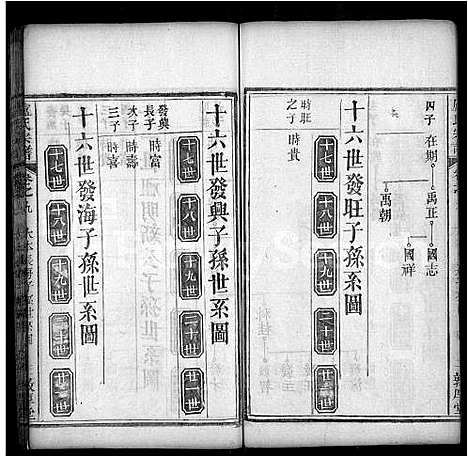 四子 在期
禹正
國志
禹朝
國祥
十六世發旺子孫世系圖
十七世 十八世 十九世 二十世 廿一世
時旺之子 時貴
十六世發興子孫世系圖
十七世 十八世 十九世 二十世 廿一世
發興長子 時富
次子 時壽
三子 時喜
十六世發海子孫世系圖
十七世 十八世 十九世 二十世 廿一世
敦厚堂